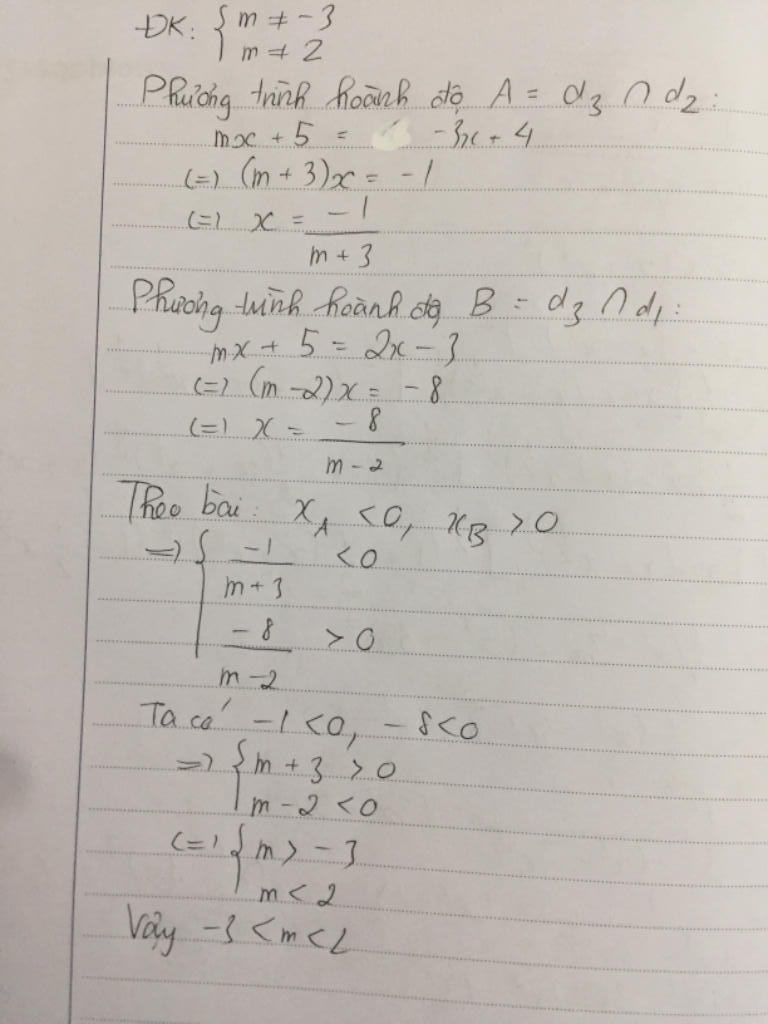 ĐK: { m ≠ -3
m ≠ 2
Phương trình hoành độ A = d₃ ∩ d₂:
mx + 5 = -3x + 4
(=) (m + 3)x = -1
(=) x = -1 / (m + 3)
Phương trình hoành độ B = d₃ ∩ d₁:
mx + 5 = 2x - 3
(=) (m - 2)x = -8
(=) x = -8 / (m - 2)
Theo bài: x_A < 0, x_B > 0
=> { -1 / (m + 3) < 0
-8 / (m - 2) > 0
Ta có -1 < 0, -8 < 0
=> { m + 3 > 0
m - 2 < 0
(=) { m > -3
m < 2
Vậy -3 < m < 2